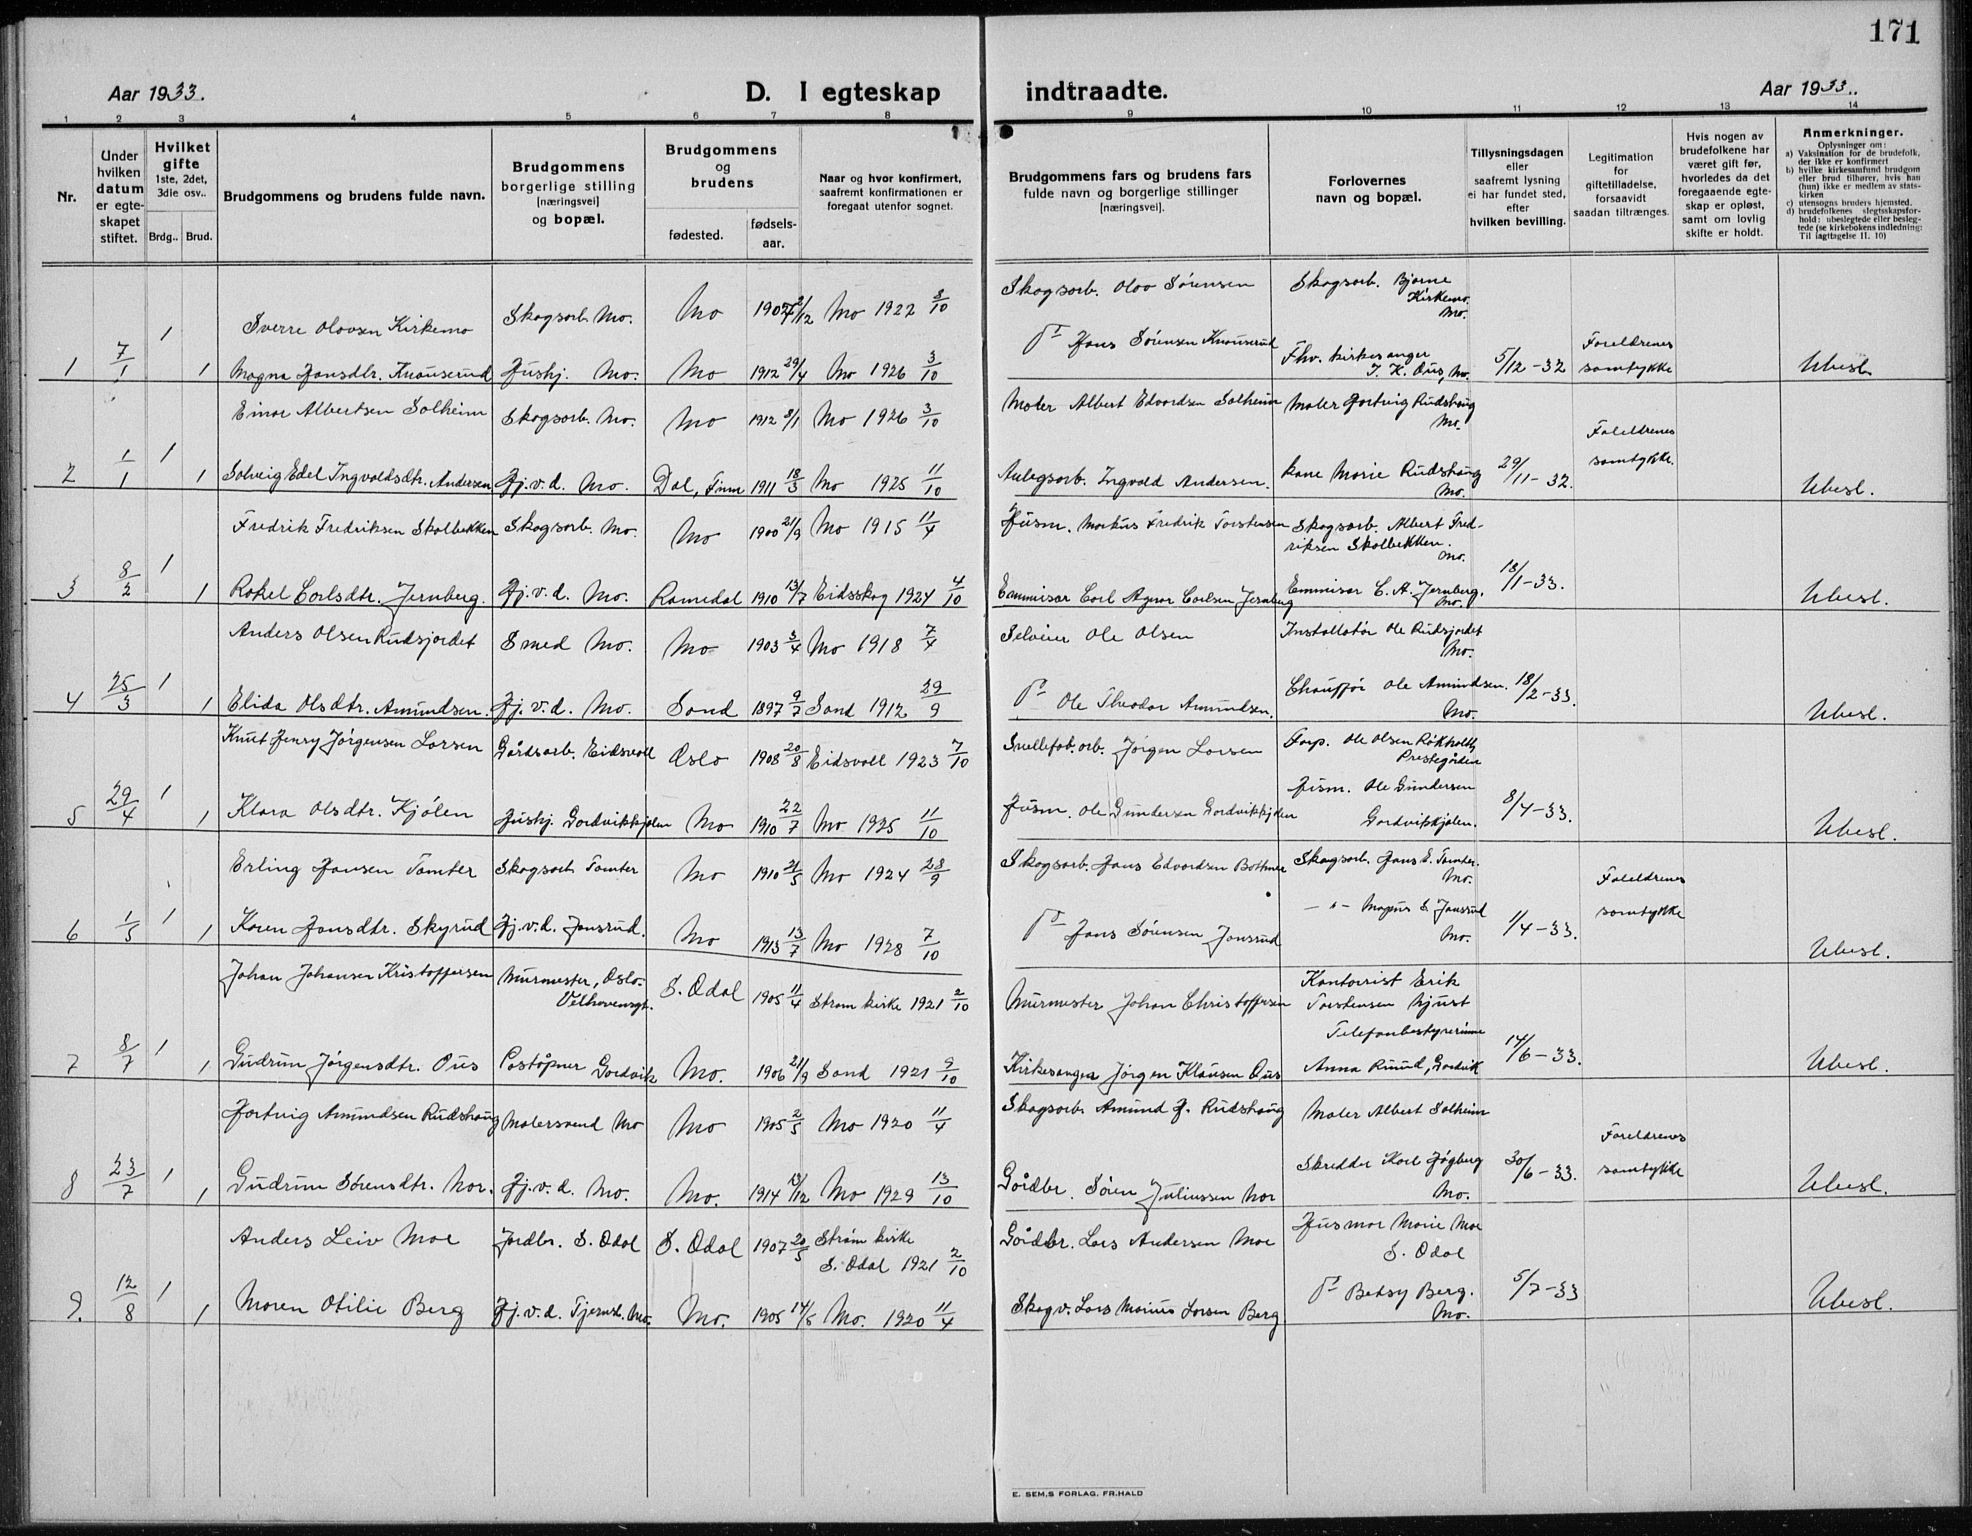 171
Aar 1933. D. I egteskap indtraadte. Aar 1933.
1 2 3 4 5 6 7 8 9 10 11 12 13 14
Nr.
Under hvilken datum er egteskapet stiftet.
Hvilket gifte 1ste, 2det, 3die osv..
Brdg.. Brud.
Brudgommens og brudens fulde navn.
Brudgommens borgerlige stilling [næringsvei] og bopæl.
Brudgommens og brudens
fødested. fødselsaar.
Naar og hvor konfirmert, saafremt konfirmationen er foregaat utenfor sognet.
Brudgommens fars og brudens fars fulde navn og borgerlige stillinger [næringsvei].
Forlovernes navn og bopæl.
Tillysningsdagen eller saafremt lysning ei har fundet sted, efter hvilken bevilling.
Legitimation for giftetilladelse, forsaavidt saadan tiltrænges.
Hvis nogen av brudefolkene har været gift før, hvorledes da det foregaaende egteskap er opløst, samt om lovlig skifte er holdt.
Anmerkninger.
Oplysninger om:
a) Vaksination for de brudefolk, der ikke er konfirmert
b) hvilke kirkesamfund brudgom eller brud tilhører, hvis han (hun) ikke er medlem av statskirken
c) utensogns bruders hjemsted.
d) brudefolkenes slegtsskapsforhold: ubeslegtede eller beslegtede (se kirkebokens indledning: Til iagttagelse II. 10)
Sverre Olovsen Kirkemo Skogsarb. Mo. Mo Mo 1922 8/10 Skogsarb. Olav Sørensen Skogsarb. Bjarne Kirkemo. Mo.
1 7/1 1 1 Magna Hansdtr. Knauserud Hushj. Mo. Mo 1912 29/4 Mo 1926 3/10 Do Hans Sørensen Knauserud Fhv. kirkesanger J. K. Ous, Mo. 5/12-32 Foreldrenes samtykke Ubesl.
Einar Albertsen Solheim Skogsarb. Mo. Mo 1912 8/1 Mo 1926 3/10 Maler Albert Edvardsen Solheim Maler Hartvig Rudshaug Mo.
2 1/1 1 1 Solveig Edel Ingvaldsdtr. Andersen Hj.v.d. Mo. Dal, Finm 1911 18/3 Mo 1925 11/10 Anlegsarb. Ingvald Andersen. Kone Marie Rudshaug Mo. 29/11-32. Foreldrenes samtykke. Ubesl.
Fredrik Fredriksen Skolbekken Skogsarb. Mo. Mo 1900 21/9 Mo 1915 11/4 Husm. Markus Fredrik Torstensen Skogsarb. Albert Fredriksen Skolbekken. Mo.
3 8/2 1 1 Rakel Carlsdtr. Jernberg. Hj.v.d. Mo. Romedal 1910 13/7 Eidsskog 1924 4/10 Emmisær Carl Agnar Carlsen Jernberg Emmisær C. A. Jernberg. Mo. 18/1-33. Ubesl.
Anders Olsen Rudsjordet Smed Mo. Mo 1903 3/4 Mo 1918 7/4 Selveier Ole Olsen Installatør Ole Rudsjordet Mo.
4 25/3 1 1 Elida Olsdtr. Amundsen. Hj.v.d. Mo. Sand 1897 9/7 Sand 1912 29/9 Do Ole Theodor Amundsen. Chauffør Ole Amundsen. Mo. 18/2-33. Ubesl.
Knut Henry Jörgensen Larsen Gårdsarb. Eidsvoll Oslo 1908 20/8 Eidsvoll 1923 7/10 Snellefab.arb. Jörgen Larsen Forp. Ole Olsen Røkholdt, Prestegården
5 29/4 1 1 Klara Olsdtr. Kjölen Hushj. Gardvikkjölen Mo 1910 22/7 Mo 1925 11/10 Husm. Ole Gundersen Gardvikkjölen Husm. Ole Gundersen Gardvikkjölen. 8/4-33. Ubesl.
Erling Hansen Tomter Skogsarb. Tomter Mo 1910 21/5 Mo 1924 28/9 Skogsarb. Hans Edvardsen Bottner Skogsarb. Hans E. Tomter. Mo.
6 1/5 1 1 Karen Hansdtr. Skyrud Hj.v.d. Jansrud. Mo 1913 13/7 Mo 1928 7/10 Do Hans Sörensen Jansrud —"— Magnus S. Jansrud Mo. 1/4-33. Foreldrenes samtykke Ubesl.
Johan Johansen Kristoffersen Murmester, Oslo. Velhavensgt. S. Odal 1905 11/4 Strøm kirke 1921 2/10 Murmester Johan Christoffersen Kontorist Erik Torstensen Njust
7 8/7 1 1 Gudrun Jörgensdtr. Ous Poståpner Gardvik Mo. 1906 21/9 Sand 1921 9/10 Kirkesanger Jörgen Klausen Ous Telefonbestyrerinne Anna Ruud, Gardvik 14/6-33. Ubesl.
Hartvig Amundsen Rudshaug Malersvend Mo Mo 1905 2/5 Mo 1920 11/4 Skogsarb. Amund H. Rudshaug Maler Albert Solheim
8 23/7 1 1 Gudrun Sörensdtr. Nor. Hj.v.d. Mo. Mo. 1914 13/12 Mo 1929 13/10 Gårdbr. Sören Juliussen Nor Skredder Karl Högberg Mo. 30/6-33. Foreldrenes samtykke Ubesl.
Anders Leiv Moe Jordbr. S. Odal S. Odal 1907 20/5 Strøm kirke S. Odal 1921 2/10 Gårdbr. Lars Andersen Moe Husmor Marie Moe S. Odal
9. 12/8 1 1 Maren Otilie Berg Hj.v.d. Tjernsl. Mo. Mo. 1905 Mo. 1920 11/4 Skogv. Lars Marius Larsen Berg Do Betsy Berg. Mo. 5/7-33 Ubesl.
E. SEM,S FORLAG, FR.HALD